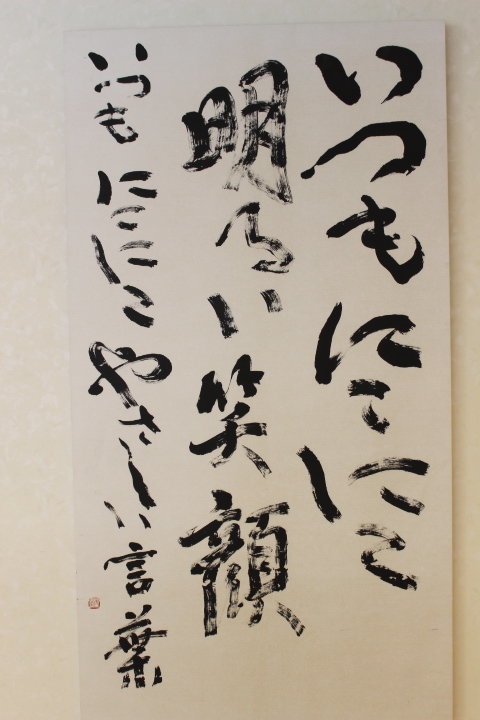 いつもにこにこ
明るい笑顔
いつもにこにこやさしい言葉